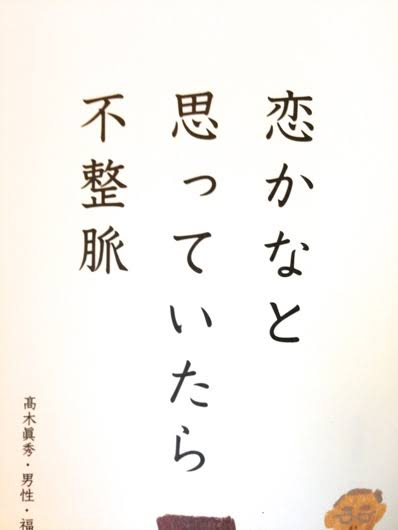 恋かなと
思っていたら
不整脈
髙木眞秀・男性・福